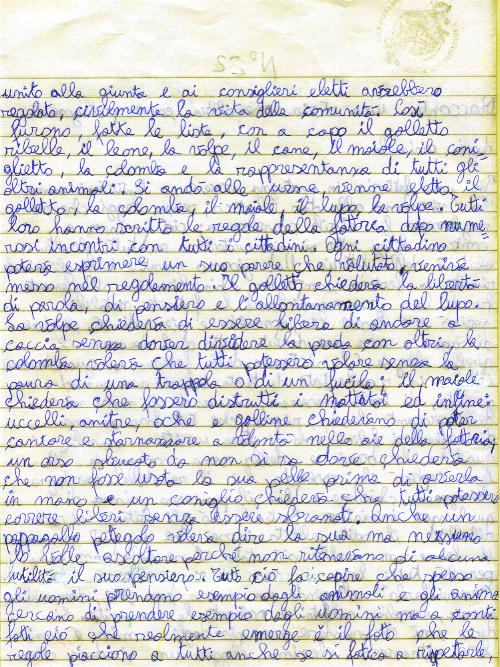 N° 22
unito alla giunta e ai consiglieri eletti avrebbero
regolato, civilmente la vita della comunità. Così
furono fatte le liste, con a capo il galletto
ribelle, il leone, la volpe, il cane, il maiale, il coni=
glietto, la colomba e la rappresentanza di tutti gli
altri animali. Si andò alle urne venne eletto il
galletto, la colomba, il maiale, il lupo la volpe. Tutti
loro hanno scritto le regole della fattoria dopo nume=
rosi incontri con tutti i cittadini. Ogni cittadino
poteva esprimere un suo parere che valutato, veniva
messo nel regolamento. Il galletto chiedeva la libertà
di parola, di pensiero e l'allontanamento del lupo.
La volpe chiedeva di essere libera di andare a
caccia senza dover dividere la preda con altri la
colomba voleva che tutti potessero volare senza la
paura di una trappola o di un fucile; il maiale
chiedeva che fossero distrutti i mattatoi ed infine:
uccelli, anitre, oche e galline chiedevano di poter
cantare e starnazzare a volontà nelle aie della fattoria,
un orso sbucato da non si sa dove chiedeva
che non fosse usata la sua pelle prima di averla
in mano e un coniglio chiedeva che tutti potessero
correre liberi senza essere sbranati. Anche un
pappagallo petegolo voleva dire la sua ma nessuno
lo volle ascoltare perché non ritenevano di alcuna
utilità il suo pensiero. Tutto ciò fa capire che spesso
gli uomini prendono esempio dagli animali e gli animali
cercano di prendere esempio dagli uomini ma a conti
fatti ciò che realmente emerge è il fatto che le
regole piacciono a tutti anche se si fatica a rispettarle